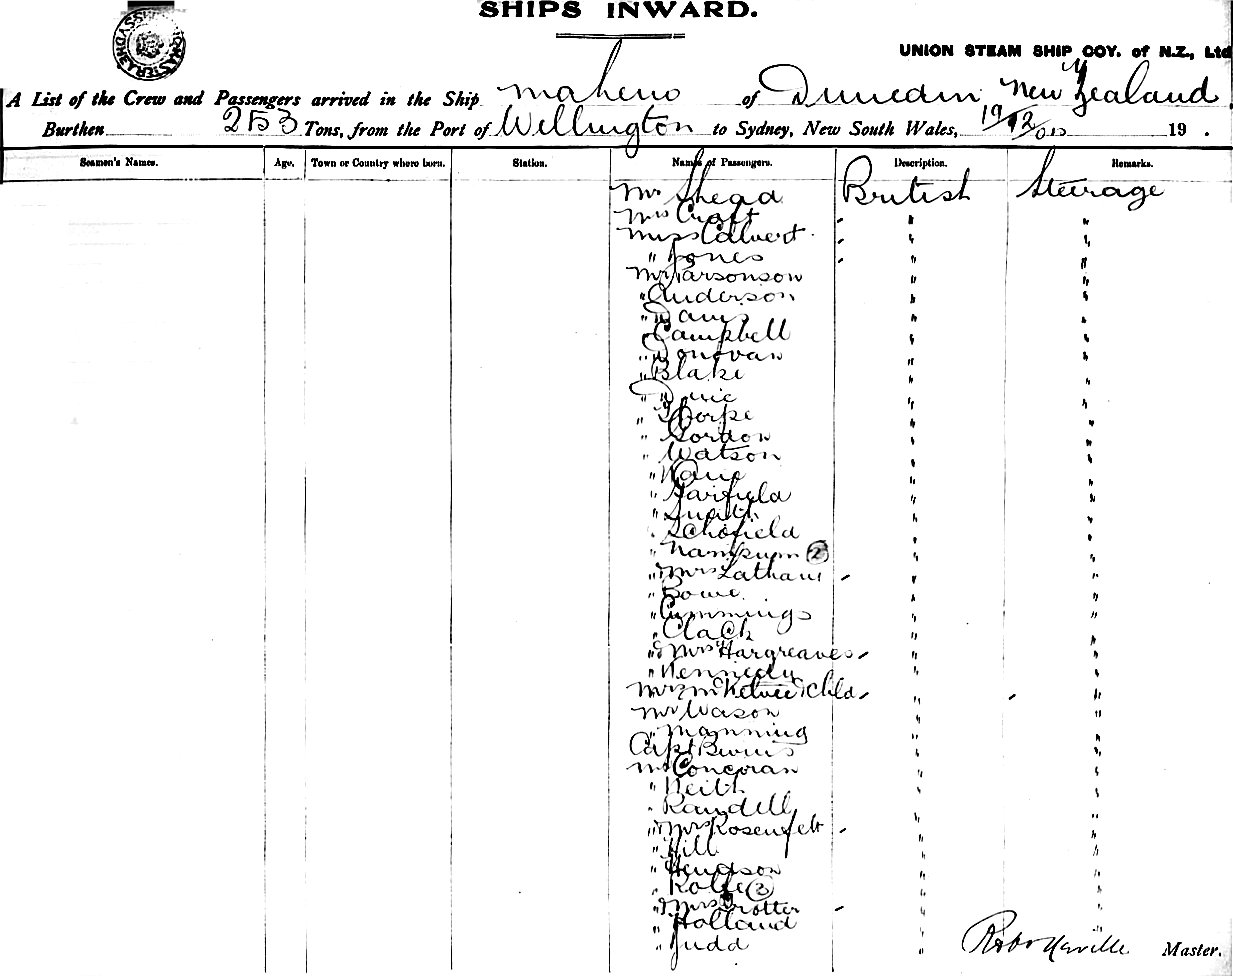 SHIPS INWARD.
UNION STEAM SHIP COY. of N.Z., Ltd
A List of the Crew and Passengers arrived in the Ship Maheno of Dunedin New Zealand
Burthen 253 Tons, from the Port of Wellington to Sydney, New South Wales, 19/12/ 19 .
Seamen's Names. Age. Town or Country where born. Station. Names of Passengers. Description. Remarks.
Mr Shead British Steerage
Mrs Croft " "
Miss Calvert " "
" Jones " "
Mr Parsonson " "
" Anderson " "
" Davis " "
" Campbell " "
" Donovan " "
" Blake " "
" " "
" Thorpe " "
" Gordon " "
" Watson " "
" " "
" Garfield " "
" Smith " "
" Schofield " "
" Namkum (2) " "
" & Mrs Latham " "
" Bowe " "
" Cummings " "
" Clack " "
" & Mrs Hargreaves " "
" Kennedy " "
Mrs McKelvie & child " "
Mr Wason " "
" Manning " "
Capt " "
Mr Concoran " "
" Keith " "
" Randell " "
" & Mrs Rosenfelt " "
" Hill " "
" Hewdson " "
" Rolfe (3) " "
" & Mrs Trotter " "
" Holland " "
" Judd "
Robt Neville Master.